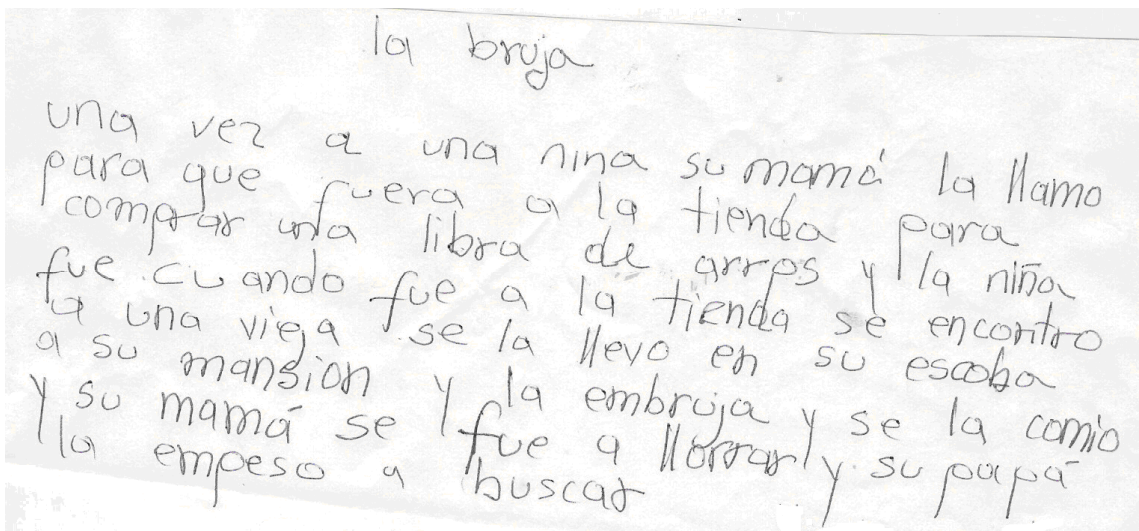 la bruja
una vez a una nina su mamá la llamo
para que fuera a la tienda para
comprar una libra de arros y la niña
fue cuando fue a la tienda se encontro
a una vieja se la llevo en su escoba
a su mansion y la embruja y se la comio
y su mamá se fue a llorrar y su papá
la empeso a buscar